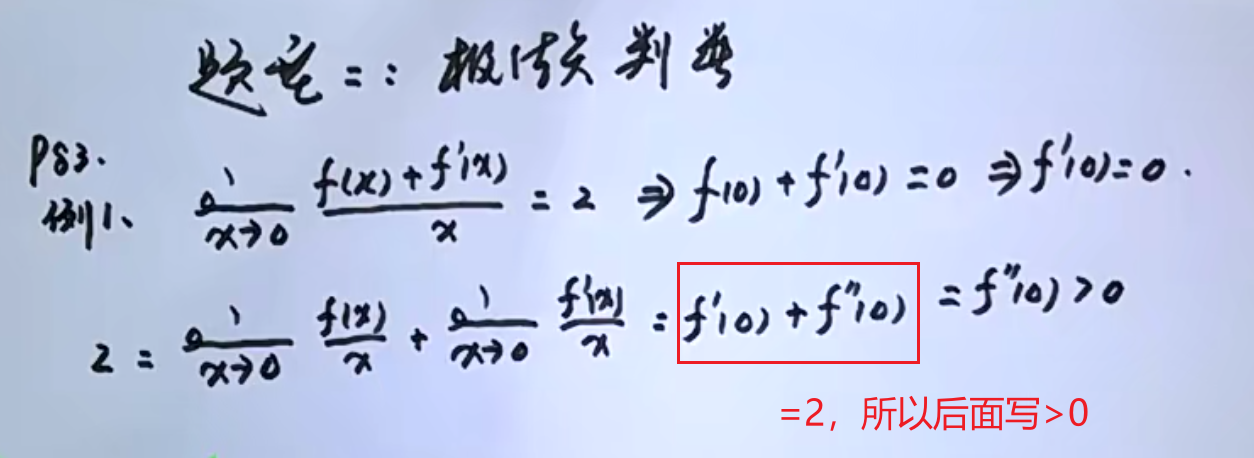 题型二：极值点判断
P83.
例1、 lim x→0 f(x)+f'(x) / x = 2 ⇒ f(0)+f'(0)=0 ⇒ f'(0)=0.
2 = lim x→0 f(x)/x + lim x→0 f'(x)/x = f'(0)+f''(0) = f''(0)>0
=2，所以后面写>0